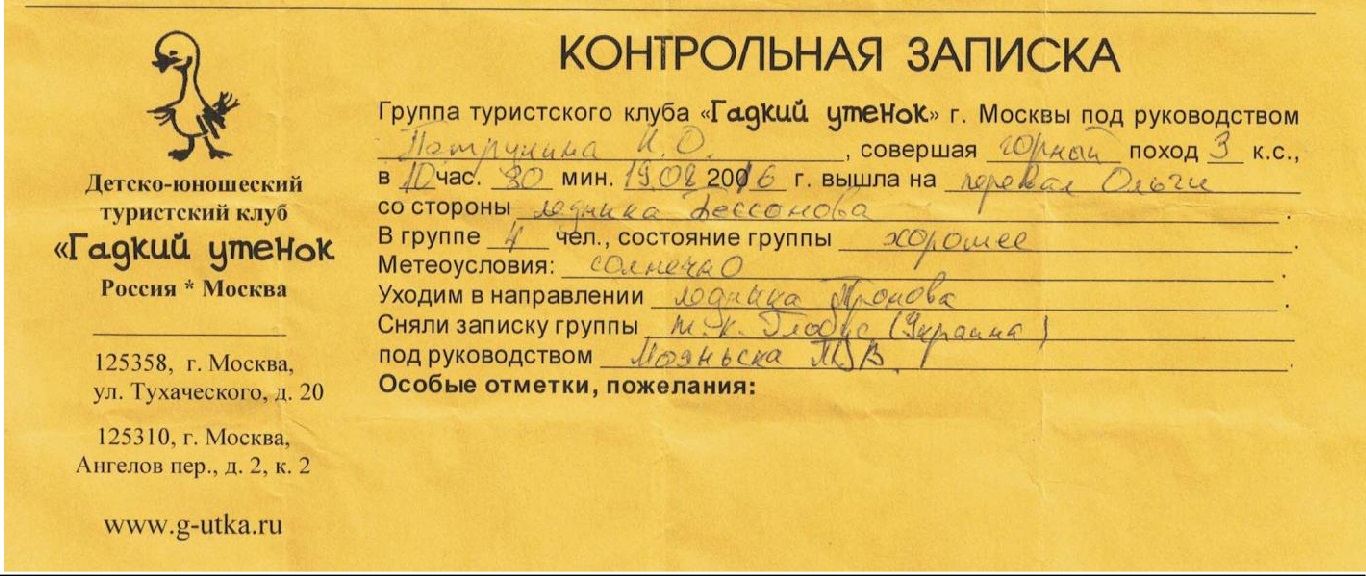 КОНТРОЛЬНАЯ ЗАПИСКА
Группа туристского клуба «Гадкий утенок» г. Москвы под руководством
Патрунина И. О., совершая горный поход 3 к.с.,
в 10 час. 30 мин. 19.08 2006 г. вышла на перевал Ольги
со стороны ледника Бессонова.
В группе 4 чел., состояние группы хорошее.
Метеоусловия: солнечно.
Уходим в направлении ледника Тронова.
Сняли записку группы т.к. Глобус (Украина)
под руководством В.
Особые отметки, пожелания:
Детско-юношеский
туристский клуб
«Гадкий утенок
Россия * Москва
125358, г. Москва,
ул. Тухаческого, д. 20
125310, г. Москва,
Ангелов пер., д. 2, к. 2
www.g-utka.ru